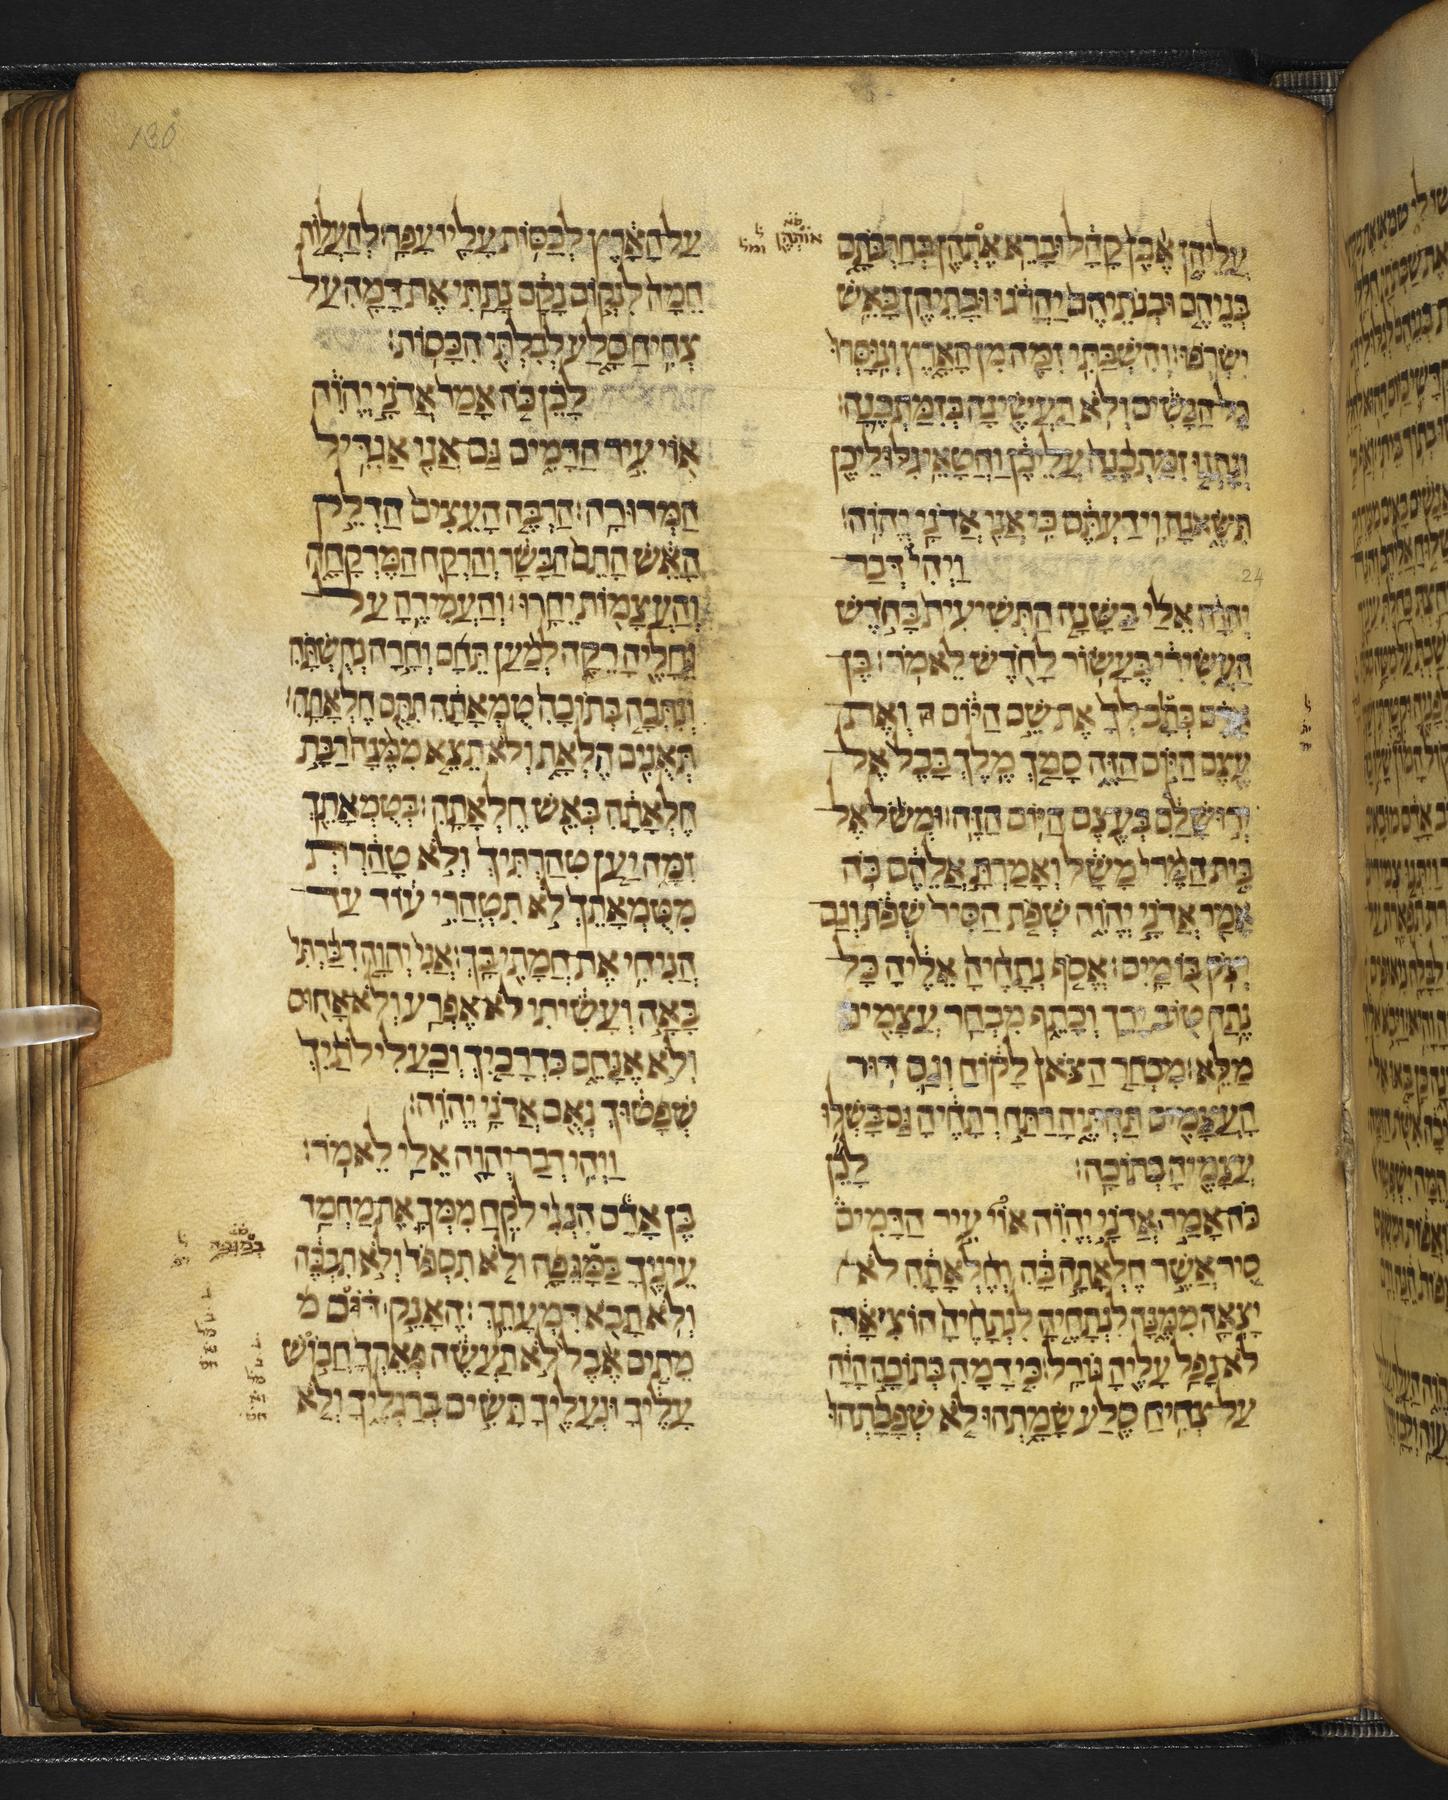 עליהן אבן קהל וברא אתהן בחרבתם
בניהם ובנתיהם יהרגו ובתיהן באש
ישרפו׃ והשבתי זמה מן הארץ ונוסרו
כל הנשים ולא תעשינה כזמתכנה׃
ונתנו זמתכנה עליכן וחטאי גלוליכן
תשאנה וידעתם כי אני אדני יהוה׃
ויהי דבר
יהוה אלי בשנה התשיעית בחדש
העשירי בעשור לחדש לאמר׃ בן
אדם כתב לך את שם היום ואת
עצם היום הזה סמך מלך בבל אל
ירושלם בעצם היום הזה׃ ומשל אל
בית המרי משל ואמרת אלהם כה
אמר אדני יהוה שפת הסיר שפת וגם
יצק בו מים׃ אסף נתחיה אליה כל
נתח טוב ירך וכתף מבחר עצמים
מלא׃ מבחר הצאן לקוח וגם דור
העצמים תחתיה רתח רתחיה גם בשלו
עצמיה בתוכה׃ לכן
כה אמר אדני יהוה אוי עיר הדמים
סיר אשר חלאתה בה וחלאתה לא
יצאה ממנה לנתחיה לנתחיה הוציאה
לא נפל עליה גורל׃ כי דמה בתוכה היה
על צחיח סלע שמתהו לא שפכתהו
אותהן
24
על הארץ לכסות עליו עפר׃ להעלות
חמה לנקום נקם נתתי את דמה על
צחיח סלע לבלתי הכסות׃
לכן כה אמר אדני יהוה
אוי עיר הדמים גם אני אגדיל
המדורה׃ הרבה העצים הדלק
האש התם הבשר והרקח המרקחה
והעצמות יחרו׃ והעמידה על
גחליה רקה למען תחם וחרה נחשתה
ונתכה בתוכה טמאתה תתם חלאתה׃
תאנים הלאת ולא תצא ממנה רבת
חלאתה באש חלאתה׃ בטמאתך
זמה יען טהרתיך ולא טהרת
מטמאתך לא תטהרי עוד עד
הניחי את חמתי בך׃ אני יהוה דברתי
באה ועשיתי לא אפרע ולא אחוס
ולא אנחם כדרכיך וכעלילותיך
שפטוך נאם אדני יהוה׃
ויהי דבר יהוה אלי לאמר׃
בן אדם הנני לקח ממך את מחמד
עיניך במגפה ולא תספד ולא תבכה
ולא תבוא דמעתך׃ האנק דום מ
מתים אבל לא תעשה פארך חבוש
עליך ונעליך תשים ברגליך ולא
130